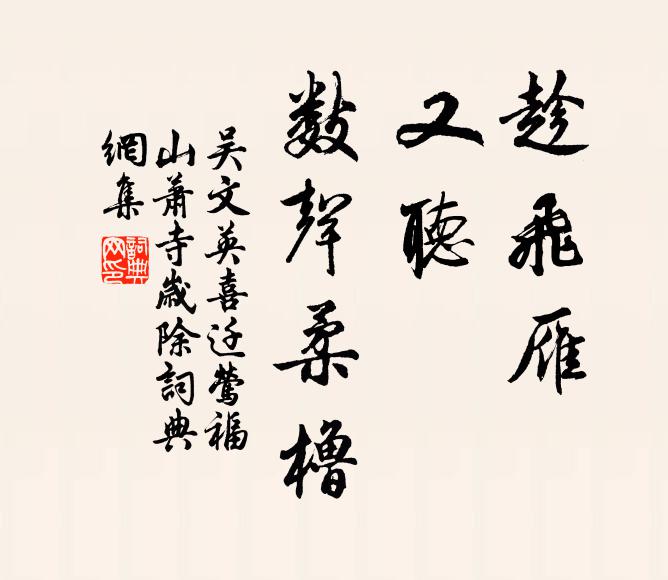 趁飛雁
又聽
數聲柔櫓
吴文英喜迁鶯福
山蕭寺歲除詞典
網集
詞典網印